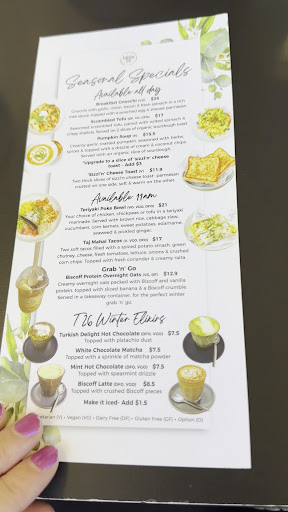 Seasonal Specials
Available all day
Breakfast Gnocchi $26
Creamy garlic roasted pumpkin, seasoned with herbs
Scrambled Tofu $17
Served on 2 slices of organic sourdough toast
Pumpkin Soup $15.9
Served with an organic slice of sourdough.
*Upgrade to a slice of 'sizzl'n' cheese
toast - Add $3
'Sizzl'n' Cheese Toast (V) $11.9
Two thick slices of sizzl'n cheese toast - parmesan
crusted on one side, soft & warm on the other.
Available 11am
Teriyaki Poke Bowl (VO, VGO, DFO) $21
Your choice of chicken, chickpeas or tofu in a teriyaki
marinade. Served with brown rice, cabbage slaw,
cucumber, corn kernels, sweet potatoes, edamame,
seaweed & pickled ginger.
Taj Mahal Tacos $17
Two soft tacos filled with a spiced potato smash, green
chutney, cheese, fresh tomatoes, lettuce, onions & crushed
corn chips. Topped with fresh coriander & creamy raita.
Grab 'n' Go
Biscoff Protein Overnight Oats $12.9
Creamy overnight oats packed with Biscoff and vanilla
protein, topped with sliced banana & a Biscoff crumble.
Served in a takeaway container, for the perfect winter
grab 'n' go.
T26 Winter Elixirs
Turkish Delight Hot Chocolate (DFO, VGO) $7.5
Topped with pistachio dust
White Chocolate Matcha $7.5
Topped with a sprinkle of matcha powder
Mint Hot Chocolate (DFO, VGO) $7.5
Topped with spearmint drizzle
Biscoff Latte (DFO, VGO) $8.5
Topped with crushed Biscoff pieces
Make it iced- Add $1.5
Vegan (VG) • Dairy Free (DF) • Gluten Free (GF) • Option (O)